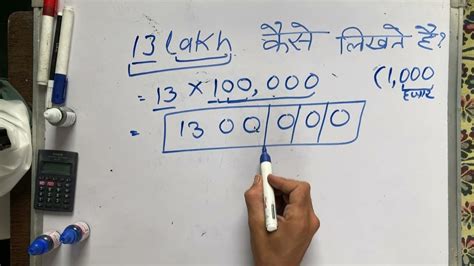 13 Lakh कैसे लिखते है?
= 13 × 100,000
(1,000
हजार
= 1300000